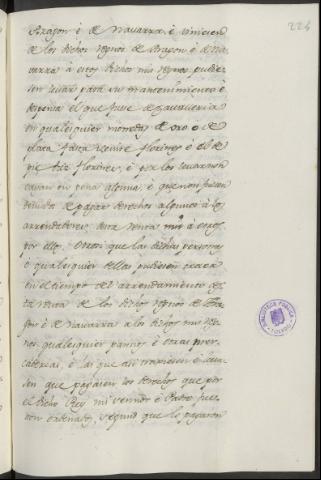 224
Aragon è de Navarra, è viniesen
de los dichos regnos de Aragon è de Na
varra à estos dichos mis regnos pudie
sen levar para su mantenimiento è
despensa el que fuese de
en qualesquier moneda de oro o de
plata fasta veinte florines è el de
pie diez florines, è por los levar non
cayan en pena alguna, è que non fuesen
tenudos de pagar derechos algunos à los
arrendadores desta renta nin à otros
por ello. Otrosi que las dichas personas
è qualesquier dellas pudiesen sacar
en el tiempo del arrendamiento des
ta renta de los dichos regnos de Ara
gon è de Navarra à los dichos mis reg
nos qualesquier paños è otras mer
caderias, è las que asi troxiesen è leva
sen que pagasen los derechos que por
el dicho Rey mi è Padre fue
ron ordenados, segund que lo pagaron
BIBLIOTECA PUBLICA
TOLEDO